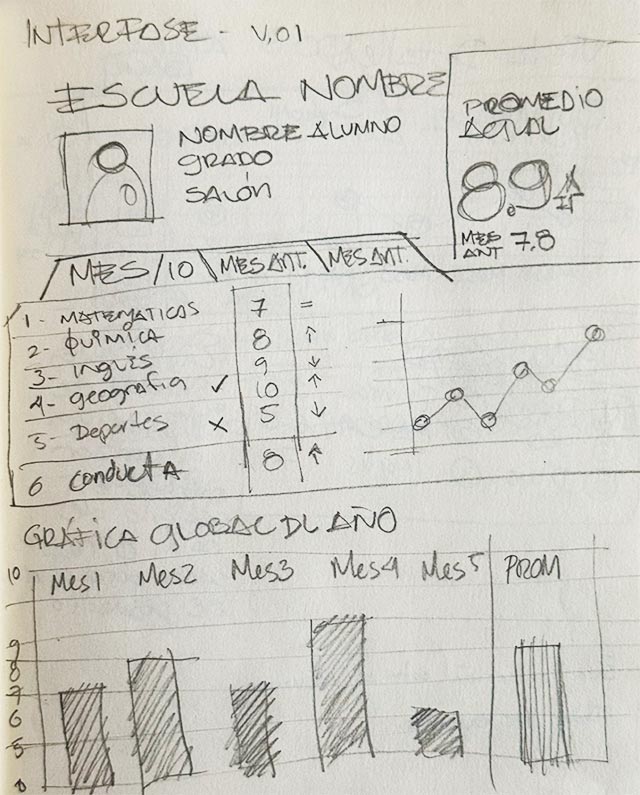 INTERFASE - V.01
ESCUELA NOMBRE
NOMBRE ALUMNO
GRADO
SALÓN
PROMEDIO
ACTUAL
8.9
MES
ANT 7,8
MES/10 MES ANT. MES ANT.
1- MATEMATICAS 7 =
2- QUÍMICA 8 ↑
3- INGLÉS 9 ↓
4- geografia ✓ 10 ↑
5- Deportes x 5 ↓
6 CONDUCTA 8 ↑
GRÁFICA GLOBAL DL AÑO
10 Mes1 Mes2 Mes3 Mes4 Mes5 PROM
9
8
7
6
5
0